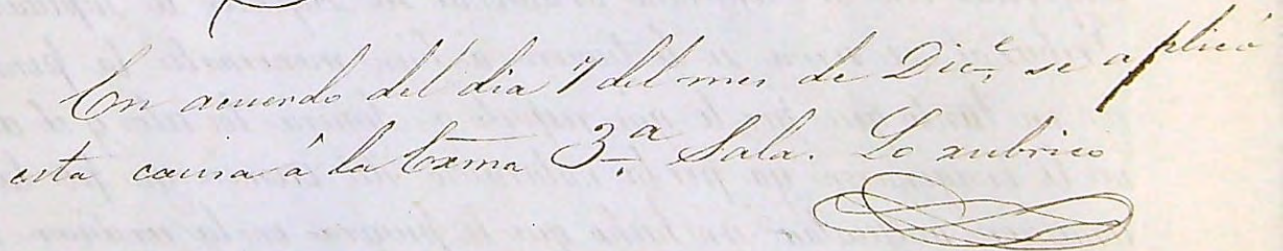 En acuerdo del dia 7 del mes de Dic.e se aplicó
esta causa á la Exma 3.a Sala. Lo rubrico